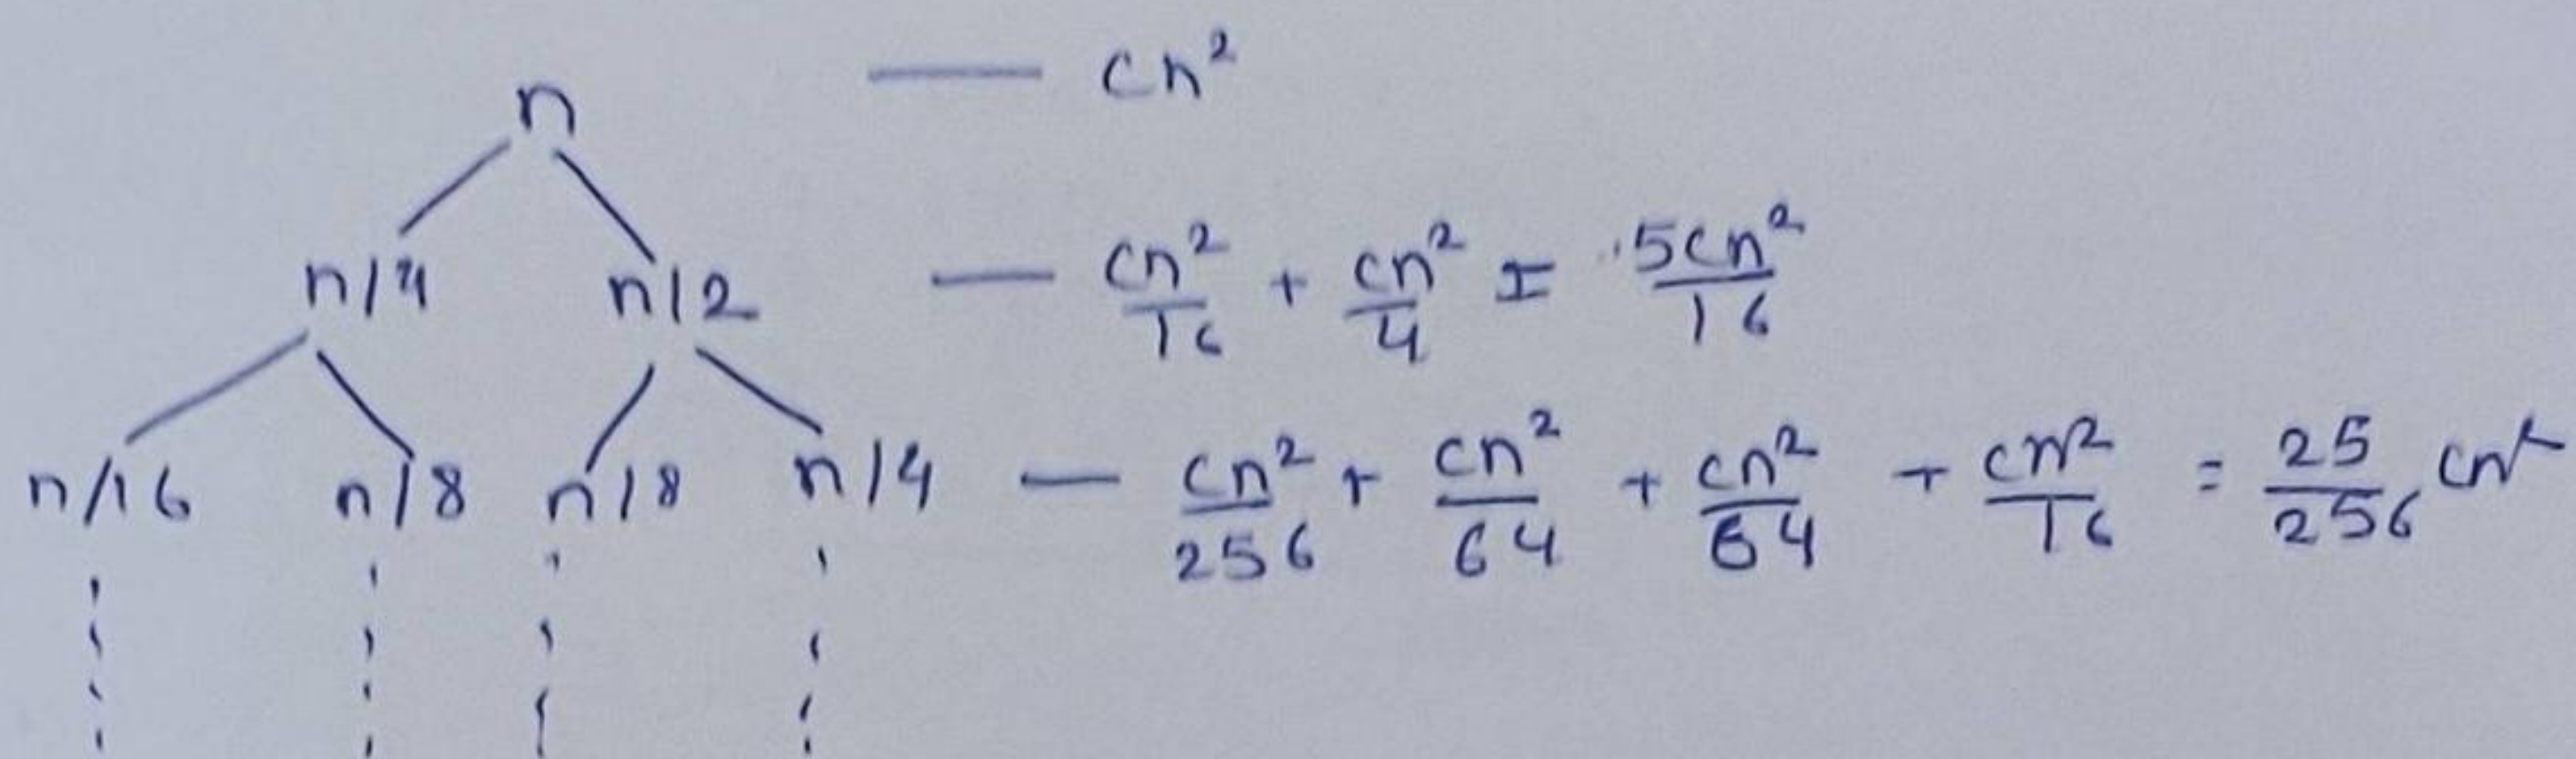 n — cn²
n/4 n/2 — cn²/16 + cn²/4 = 5cn²/16
n/16 n/8 n/8 n/4 — cn²/256 + cn²/64 + cn²/64 + cn²/16 = 25/256 cn²